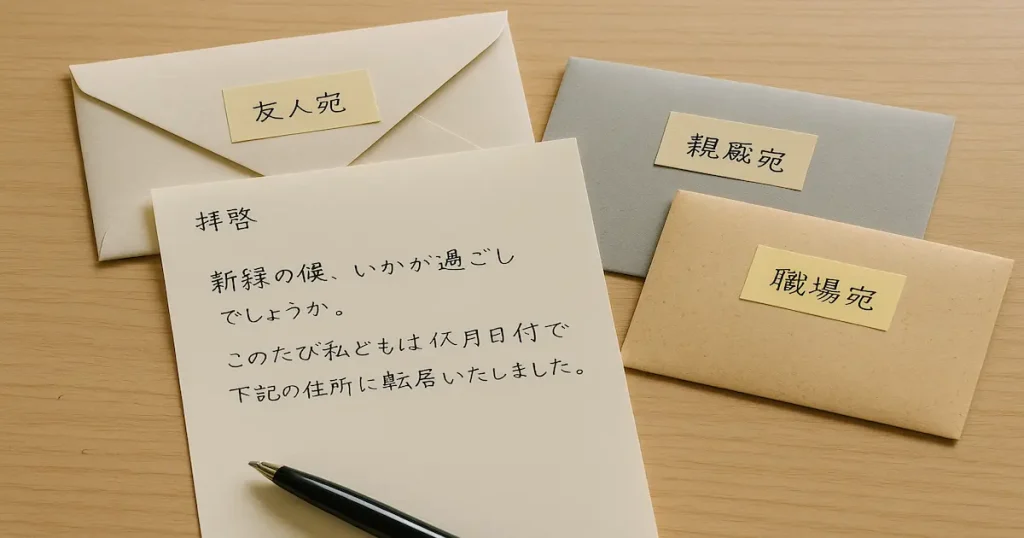 友人宛
親 宛
職場宛
拝啓
新緑の候、いかが過ごし
でしょうか。
このたび私どもは 月日付で
下記の住所に転居いたしました。